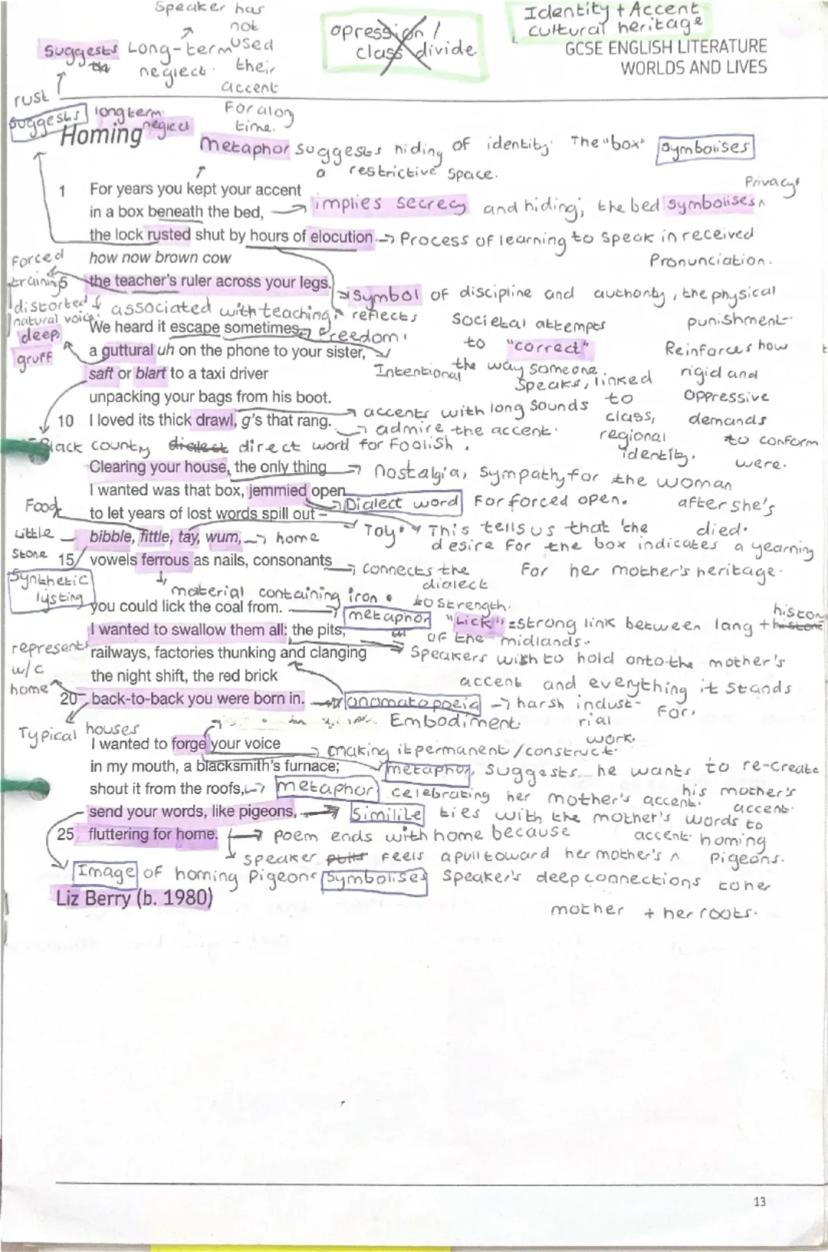 Speaker has
not
used
their
accent
For along
time.
Suggests Long-term
neglect.
opression /
class divide
Identity + Accent
cultural heritage
GCSE ENGLISH LITERATURE
WORLDS AND LIVES
rust
suggests longterm
neglect
Homing
Metaphor suggests hiding of identity. The "box" symbolises
a restrictive space.
Privacy
1 For years you kept your accent
in a box beneath the bed, → implies secrecy and hiding; the bed symbolises ^
the lock rusted shut by hours of elocution → Process of learning to speak in received
Pronunciation.
how now brown cow
Forced
training
5 the teacher's ruler across your legs.
Symbol of discipline and authority, the physical
punishment.
Reinforces how
rigid and
oppressive
demands
to conform
were.
distorted
natural voice
associated with teaching
reflects
societal attempts
to "correct"
the way someone
speaks, linked
to
class,
regional
identity.
We heard it escape sometimes, → freedom.
deep
gruff
a guttural uh on the phone to your sister,
Intentional
saft or blart to a taxi driver
unpacking your bags from his boot.
10 I loved its thick drawl, g's that rang.
accents with long sounds
admire the accent.
Black country dialect direct word for Foolish.
Clearing your house, the only thing → Nostalgia, sympathy for the woman
after she's
died.
I wanted was that box, jemmied open
Dialect word For forced open.
to let years of lost words spill out –
Food
Little
Stone
bibble, fittle, tay, wum, → home
Toy.
This tells us that the
desire for the box indicates a yearning
For her mother's heritage.
15 vowels ferrous as nails, consonants
connects the
dialect
to strength.
Synthetic
lysting
material containing iron.
you could lick the coal from. → metaphor "Lick" = strong link between lang + history
of the midlands.
I wanted to swallow them all: the pits,
represents
w/c
home
railways, factories thunking and clanging
Speakers wish to hold onto the mother's
accent and everything it stands
For.
the night shift, the red brick
20 back-to-back you were born in.
onomatopoeia → harsh indust-
rial
work.
Typical houses
Embodiment.
I wanted to forge your voice
making it permanent/construct
in my mouth, a blacksmith's furnace;
metaphor, suggests he wants to re-create
his mother's
accent.
shout it from the roofs, → metaphor celebrating her mother's accent.
send your words, like pigeons, → Similie ties with the mother's words to
accent homing
pigeons.
25 fluttering for home.
poem ends with home because
speaker pulls feels a pull toward her mother's ^
Image of homing pigeons symbolises speaker's deep connections to her
mother + her roots.
Liz Berry (b. 1980)
13